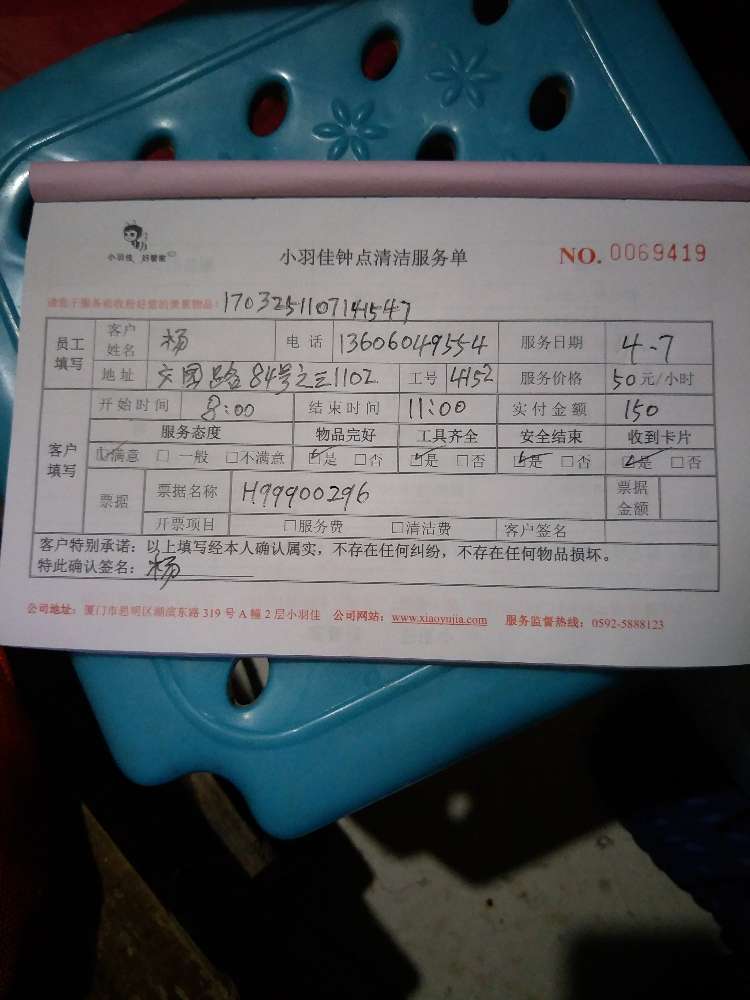 小羽佳 好管家
小羽佳钟点清洁服务单 NO. 0069419
请您于服务前收拾好您的贵重物品! 1703251107141547
员工填写 客户姓名 杨 电话 13606049554 服务日期 4.7
地址 文園路84号之三1102 工号 4152 服务价格 50元/小时
客户填写 开始时间 8:00 结束时间 11:00 实付金额 150
服务态度 物品完好 工具齐全 安全结束 收到卡片
☑满意 □一般 □不满意 ☑是 □否 ☑是 □否 ☑是 □否 ☑是 □否
票据 票据名称 H99900296 票据金额
开票项目 □服务费 □清洁费 客户签名
客户特别承诺:以上填写经本人确认属实,不存在任何纠纷,不存在任何物品损坏。
特此确认签名:杨
公司地址:厦门市思明区湖滨东路319号A幢2层小羽佳 公司网站:www.xiaoyujia.com 服务监督热线:0592-5888123